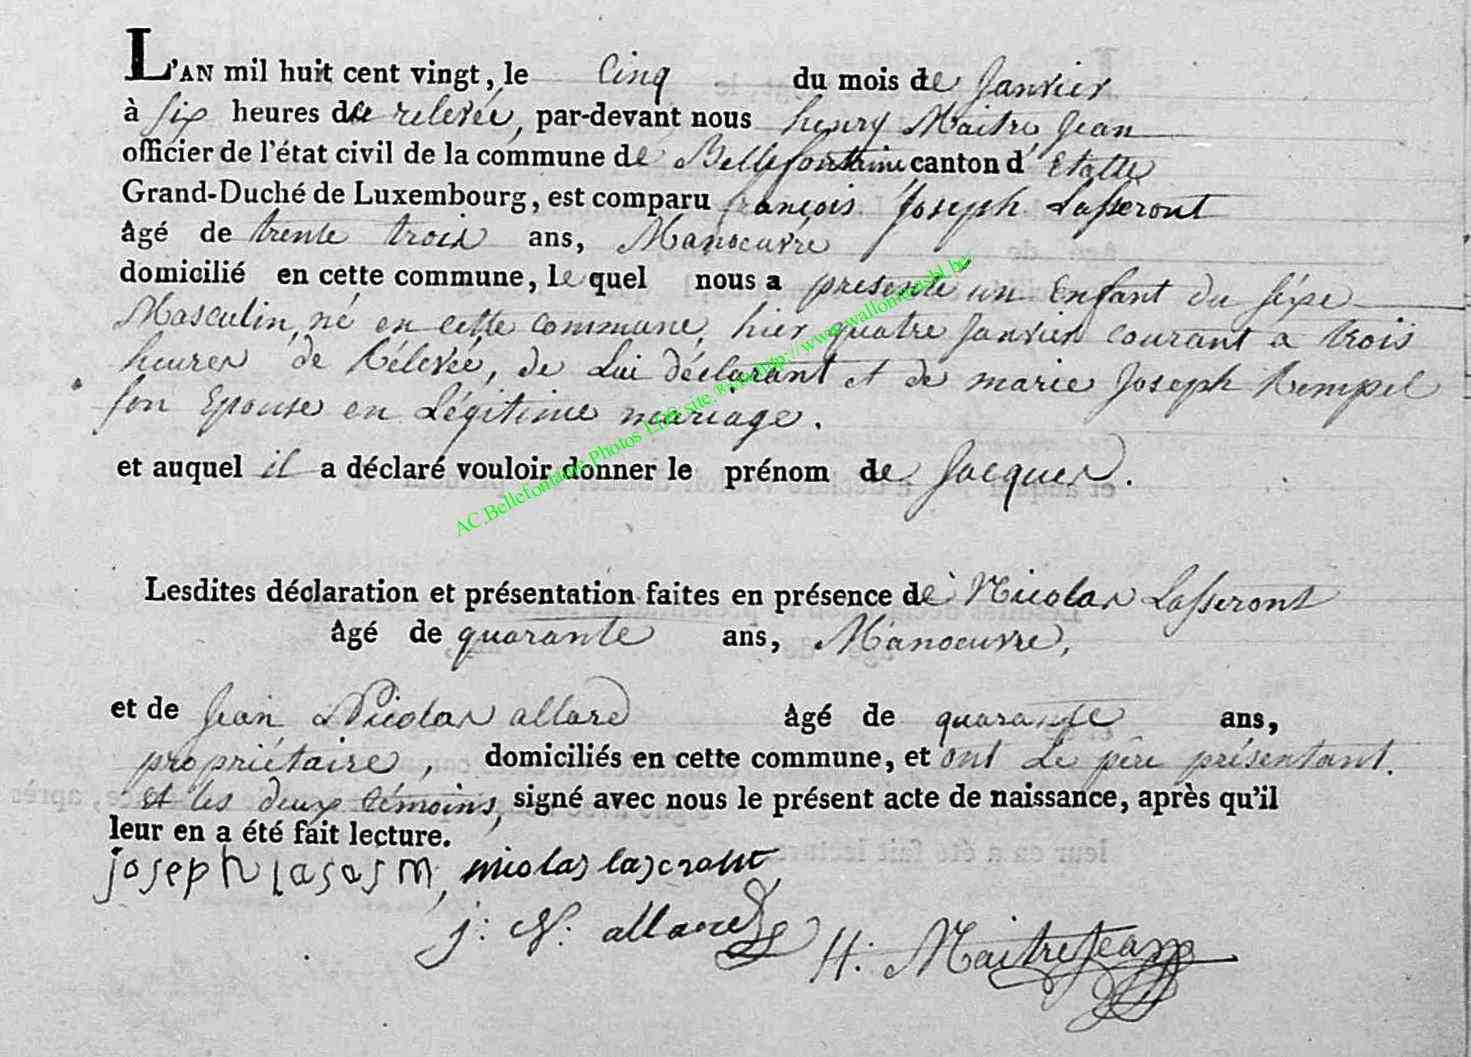 L'AN mil huit cent vingt, le Cinq du mois de Janvier
à six heures de relevée, par-devant nous henry Maitre Jean
officier de l'état civil de la commune de Bellefontaine canton d'Etalle
Grand-Duché de Luxembourg, est comparu françois Joseph Lasseront
âgé de trente trois ans, Manoeuvre
domicilié en cette commune, lequel nous a présenté un Enfant du sexe
Masculin, né en cette commune, hier quatre Janvier courant a trois
heures de Rélevée, de Lui déclarant et de marie Joseph Rempel
son Epouse en Légitime mariage.
et auquel il a déclaré vouloir donner le prénom de Jacques.
AC.Bellefontaine.Photos
Lesdites déclaration et présentation faites en présence de Nicolas Lasseront
âgé de quarante ans, Manoeuvre,
et de Jean Nicolas allard âgé de quarante ans,
propriétaire, domiciliés en cette commune, et ont Le père présentant.
et les deux témoins, signé avec nous le présent acte de naissance, après qu'il
leur en a été fait lecture.
joseph nicolas
j: N: allard H. MaitreJean